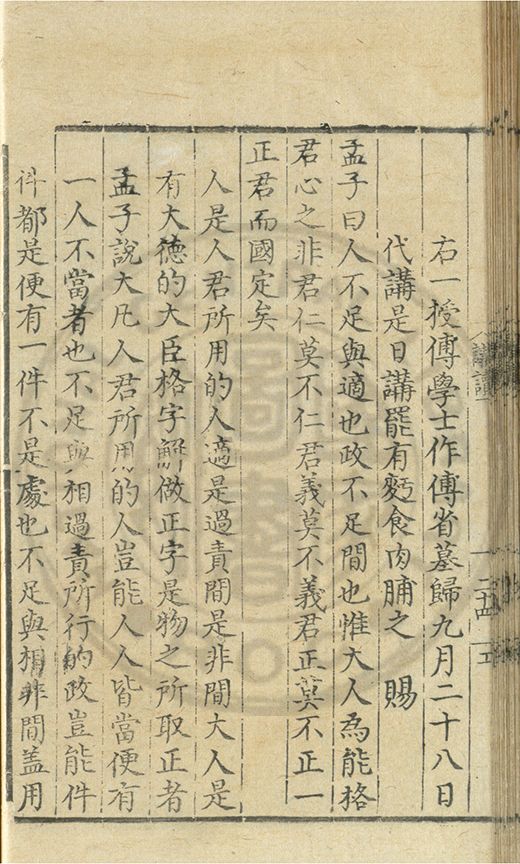 右一授傅學士作傅省墓歸九月二十八日
代講是日講罷有麪食肉脯之 賜
孟子曰人不足與適也政不足間也惟大人為能格
君心之非君仁莫不仁君義莫不義君正莫不正一
正君而國定矣
人是人君所用的人適是過責間是非間大人是
有大德的大臣格字解做正字是物之所取正者
孟子說大凡人君所用的人豈能人人皆當便有
一人不當者也不足與相過責所行的政豈能件
件都是便有一件不是處也不足與相非間蓋用